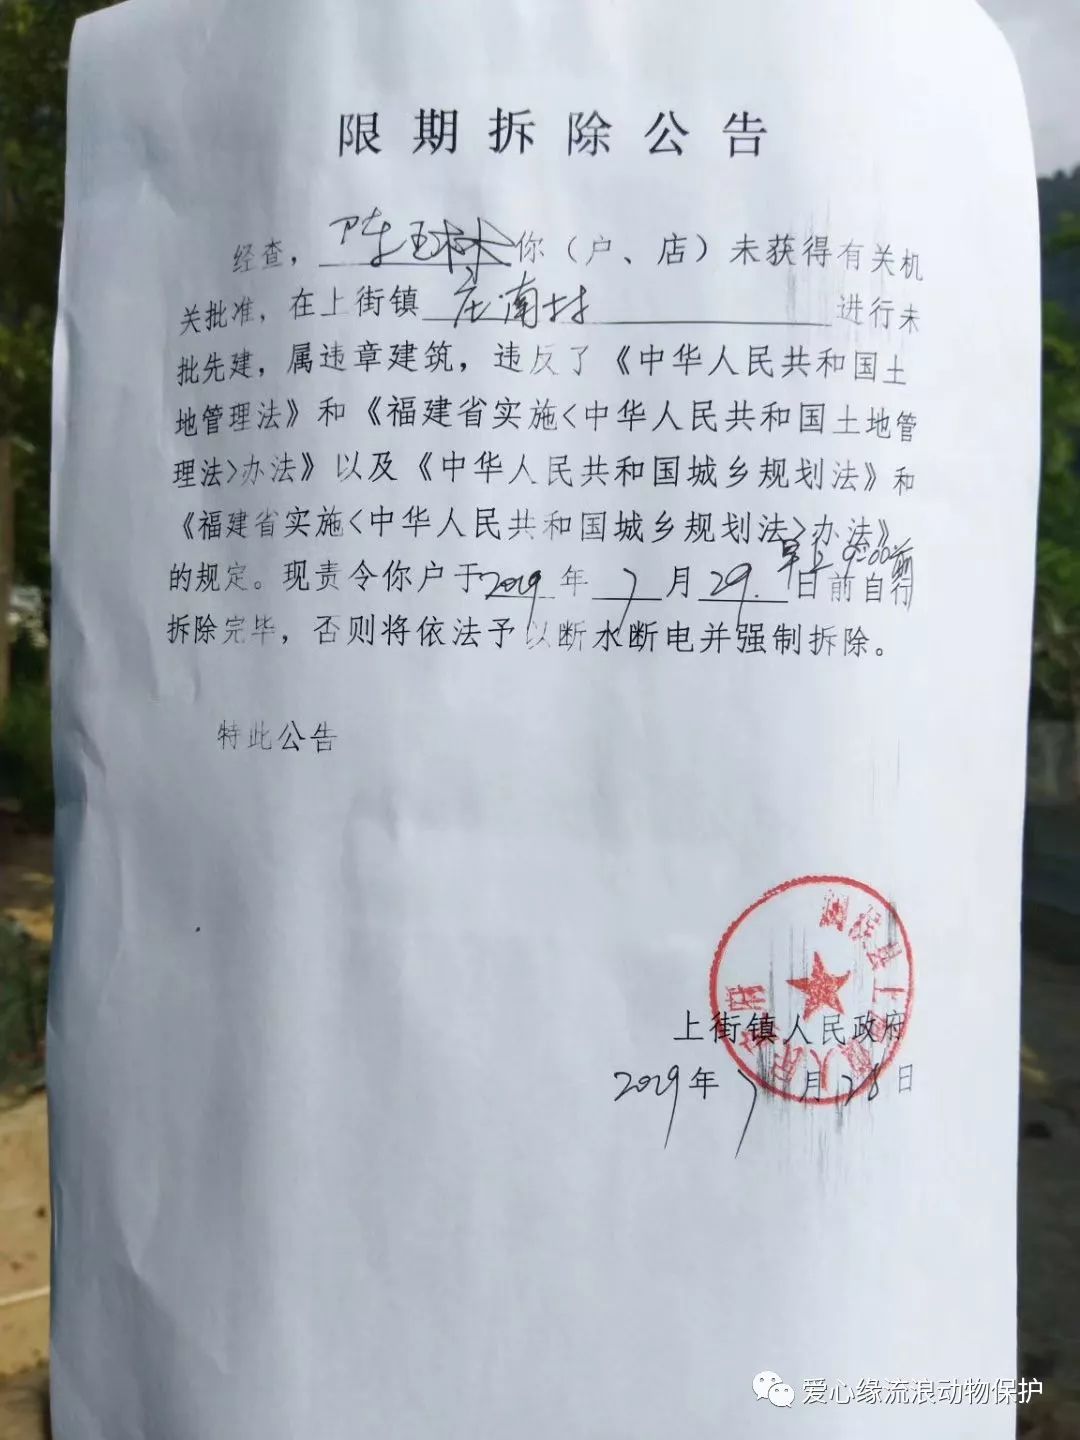 限期拆除公告
经查，陈玉林你（户、店）未获得有关机
关批准，在上街镇庄南村进行未
批先建，属违章建筑，违反了《中华人民共和国土
地管理法》和《福建省实施<中华人民共和国土地管
理法>办法》以及《中华人民共和国城乡规划法》和
《福建省实施<中华人民共和国城乡规划法>办法》
早上9:00前
的规定。现责令你户于2019年7月29日前自行
拆除完毕，否则将依法予以断水断电并强制拆除。
特此公告
闽侯县上街镇人民政府
上街镇人民政府
2019年7月28日
爱心缘流浪动物保护